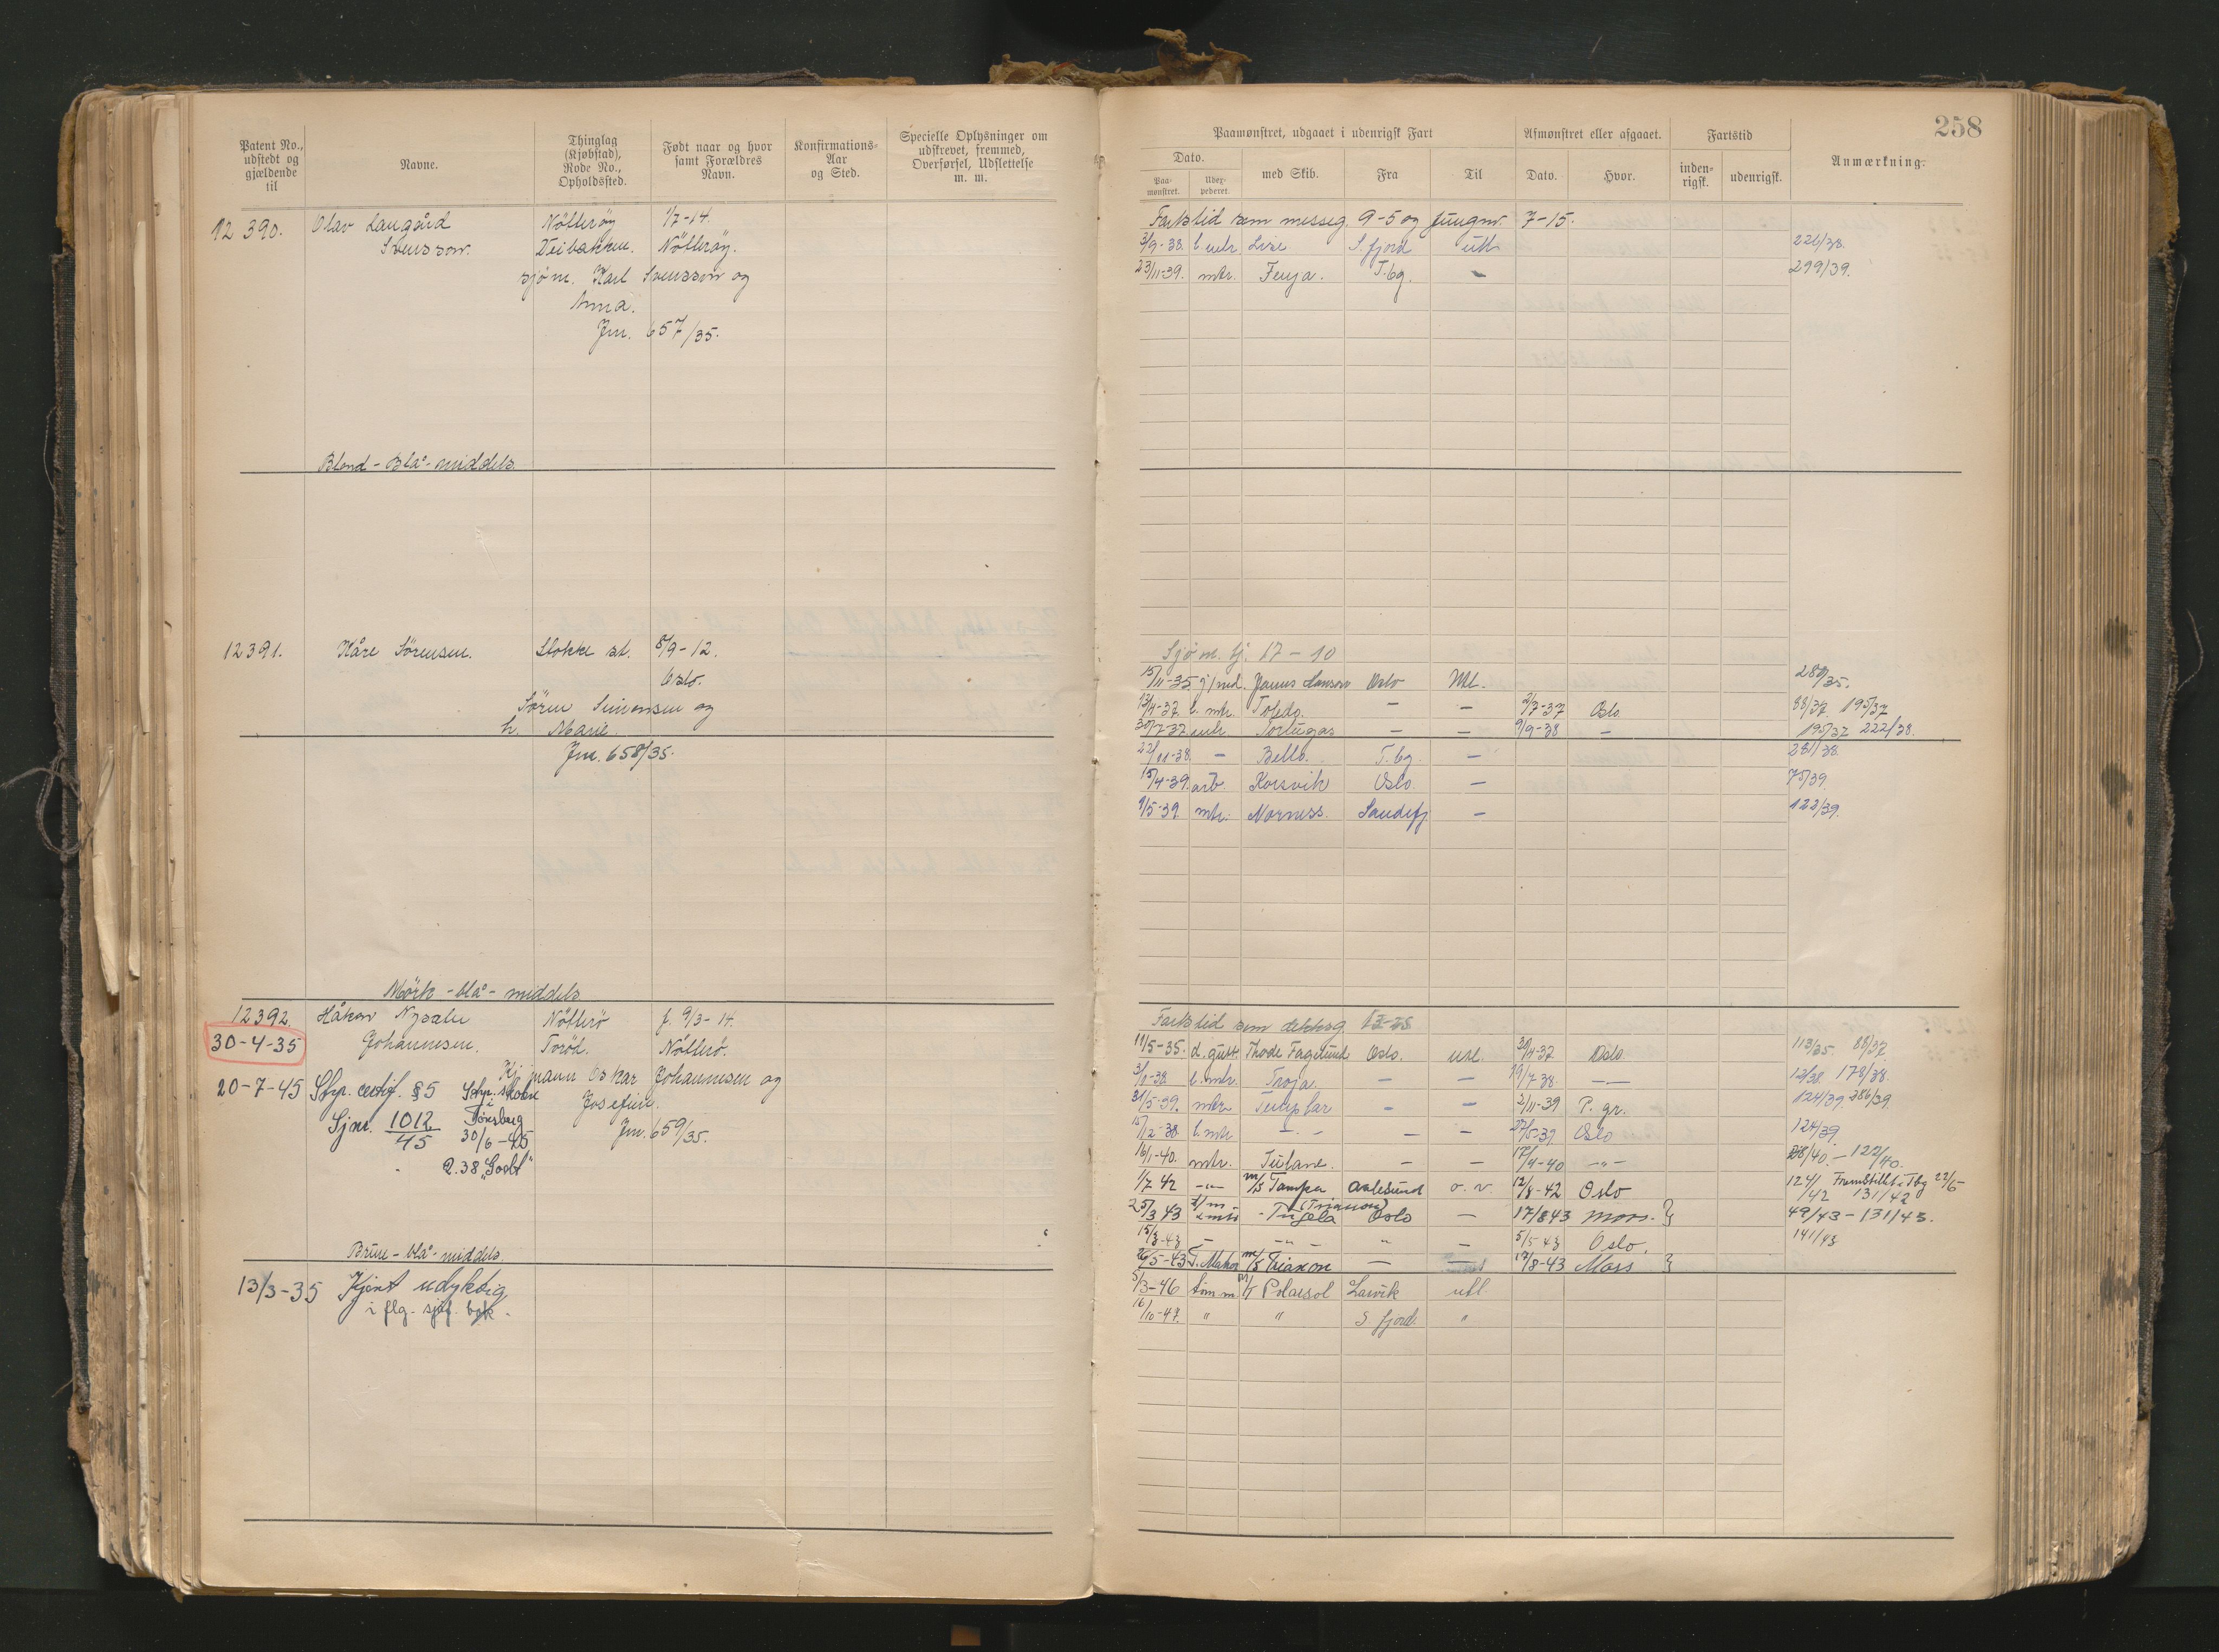 Patent No., udstedt og gjældende til
Navne.
Thinglag (Kjøbstad), Rode No., Opholdssted.
Født naar og hvor samt Forældres Navn.
Konfirmations-Aar og Sted.
Specielle Oplysninger om udskrevet, fremmed, Overførsel, Udslettelse m. m.
12 390. Olav Laugård Nötteröy 1/7-14.
Svensson. Veibakken. Nötteröy.
sjöm. Karl Svensson og
Anna.
Jm. 657/35.
Blond - Blå - middels.
12391. Kåre Sörensen. Stokke st. 8/9-12.
Oslo.
Sören Simensen og
h. Marie.
Jm. 658/35.
Mörk - blå - middels
12392. Håkon Nötterö f. 9/3-14.
30-4-35 Johannesen. Torød. Nötterö.
Kj.mann Oskar Johannesen og
20-7-45 Styr. certif. §5 Styr. skole Josefine.
Sjm. 1012/45 i Tönsberg 30/6-45 Jm. 659/35.
2.38 "Godt"
Brun - blå - middels.
13/3-35 Kjent udyktig
i flg. sjøf. bok.
258
Paamønstret, udgaaet i udenrigsk Fart
Afmønstret eller afgaaet.
Fartstid
Anmærkning.
Dato.
Paa-mønstret.
Udex-pederet.
med Skib.
Fra
Til
Dato.
Hvor.
inden-rigsk.
udenrigsk.
Fartstid som messeg. 9-5 og jungm. 7-15.
3/9-38. Lise S.fjord utl. 226/38.
23/11-39. mtr. Fenja. T.bg. - 299/39.
Sjöm. bj. 17-10
15/11-35 Oslo Utl. 280/35.
13/4-37 l. mtr. Toledo. - - 2/7-37 Oslo 88/37 195/37
30/7-37 mtr. Tortugas - - 9/9-38 - 195/37 222/38.
22/11-38. - Bello. T.bg. - 281/38
15/4-39. arb. Korsvik Oslo - 75/39.
9/5-39 mtr. Norness. Sandefj - 122/39.
Fartstid som dekksg.
11/5-35. d.gutt Thode Fagelund Oslo. utl. 30/4-37 Oslo. 113/35. 88/37
3/1-38. l. mtr. Troja. - - 19/7-38. - 12/38. 178/38.
31/5-39. mtr Templar - - 2/11-39 P. gr. 124/39. 286/39.
15/12-38 l. mtr - - - 27/5-39 Oslo 124/39.
16/1-40. mtr. Tulane. - - 17/4-40 -"- 28/40. - 122/40.
1/7 42 -"- m/s Tampa Aalesund o. v. 12/8-42 Oslo 124/42 Fremstillt i Tbg 22/6 131/42
(Trianon)
25/3 43 Tugela Oslo - 17/843 Moss. 49/43 - 131/43.
15/3-43 - -"- " - 5/5-43 Oslo. 141/43
26/5-43 m/s Trianon - 17/8-43 Moss
5/3-46 tömm m/t Polarsol Larvik utl.
16/10-47. " " S fjord. "